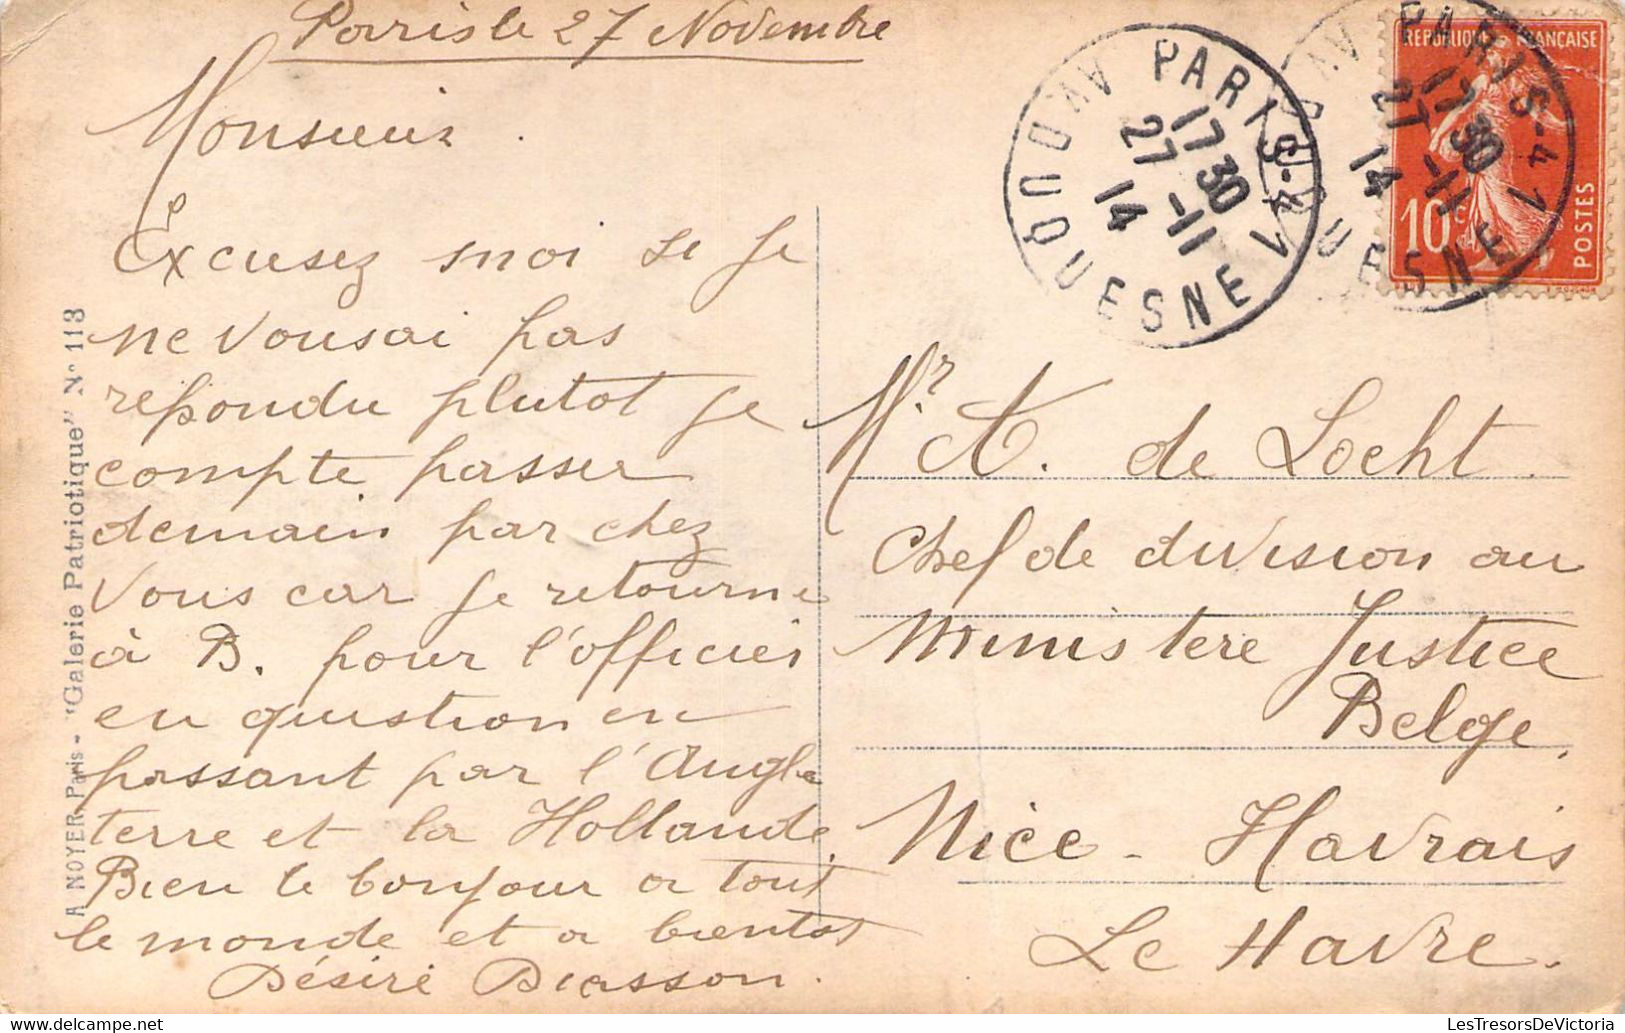 Parris le 27 Novembre
Monsieur.
Excusez moi se je
ne vous ai pas
repondu plutot je
compte passer
demain par chez
vous car je retourne
à B. pour l'officier
en question en
passant par l'Angle
terre et la Hollande
Bien le bonjour a tout
le monde et a bientot
Désiré
A NOYER, Paris - "Galerie Patriotique" N° 113
PARIS-4
17 30
27 -11
14
AV DUQUESNE
PARIS-4
17 30
27 -11
14
REPUBLIQUE FRANÇAISE
10c
POSTES
Mr A. de Locht
Chef de division au
Ministere Justice
Belge.
Nice-Havrais
Le Havre.
LesTresorsDeVictoria.com